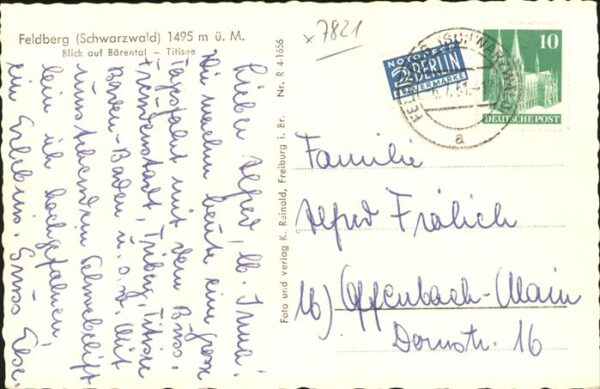 Feldberg (Schwarzwald) 1495 m ü. M.
Blick auf Bärental – Titisee
x 7821
Nr. R 4-1656
Foto und verlag K. Reinold, Freiburg i. Br.
NOTOPFER
2 BERLIN
STEUERMARKE
10
DEUTSCHE POST
FELDBERG (SCHWARZWALD)
a
Lieber Alfred, lb. Irma!
Wir machen heute eine große
Tagesfahrt mit dem Büss.
Freudenstadt, Triberg, Titisee
Baden-Baden u.s.w. Mit
umstehendem Schwebelift
bin ich hochgefahren,
ein Erlebnis. Grüss Else.
Familie
Alfred Frölich
16) Offenbach-Main
Domstr. 16